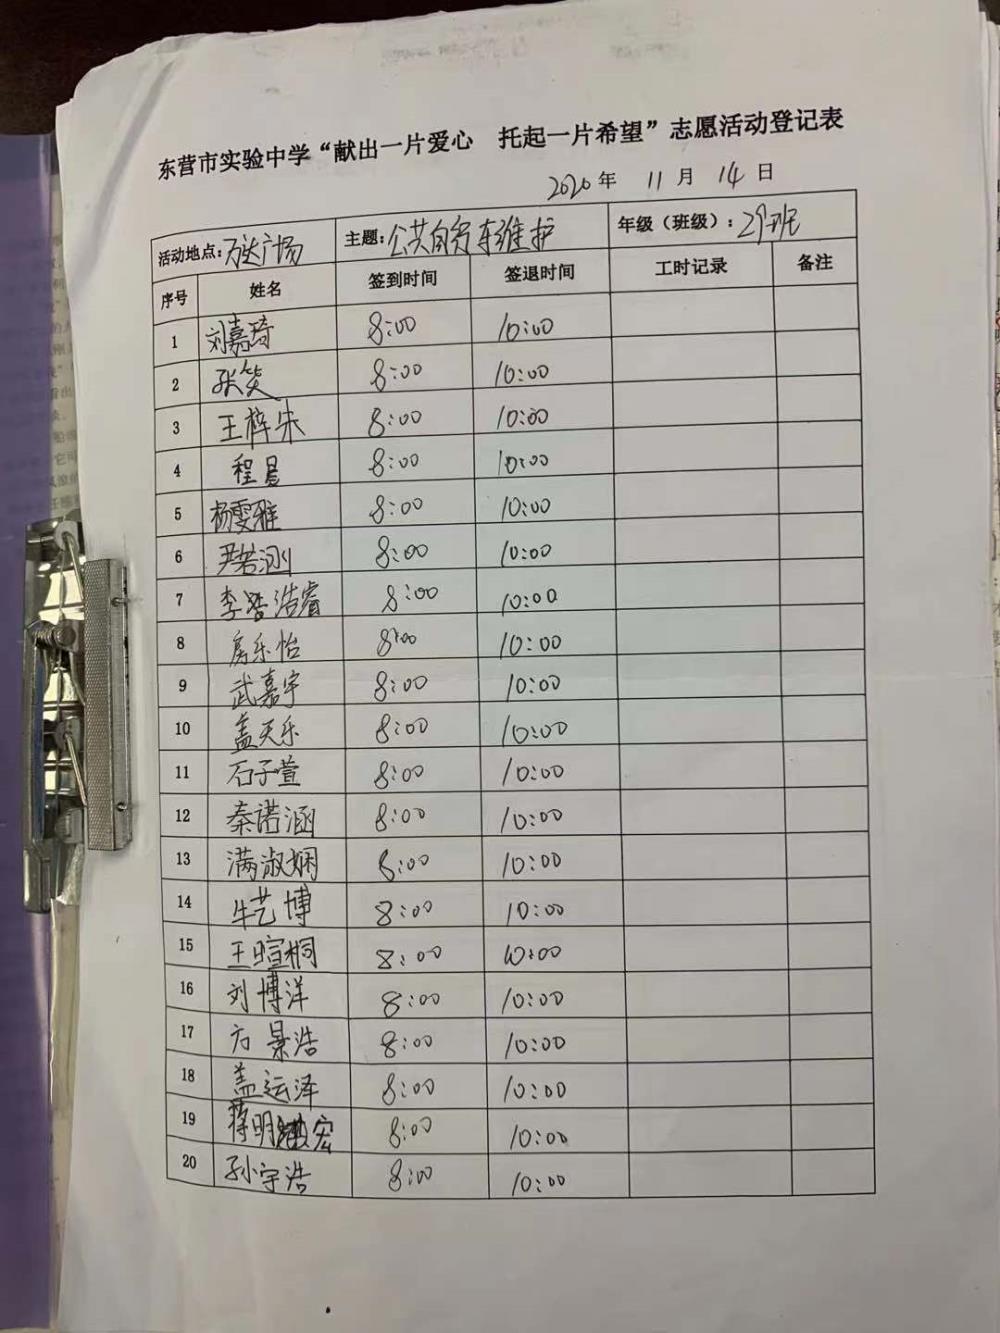 东营市实验中学“献出一片爱心 托起一片希望”志愿活动登记表
2020年 11月 14日
活动地点:万达广场 主题:公共自行车维护 年级(班级):29班
序号 姓名 签到时间 签退时间 工时记录 备注
1 刘嘉琦 8:00 10:00
2 张笑 8:00 10:00
3 王梓朱 8:00 10:00
4 程昱 8:00 10:00
5 杨雯雅 8:00 10:00
6 尹若渊 8:00 10:00
7 李浩睿 8:00 10:00
8 房乐怡 8:00 10:00
9 武嘉宇 8:00 10:00
10 盖天乐 8:00 10:00
11 石子萱 8:00 10:00
12 秦诺涵 8:00 10:00
13 满淑娴 8:00 10:00
14 牛艺博 8:00 10:00
15 王暄桐 8:00 10:00
16 刘博洋 8:00 10:00
17 方景浩 8:00 10:00
18 盖运泽 8:00 10:00
19 蒋明宏 8:00 10:00
20 孙宇浩 8:00 10:00